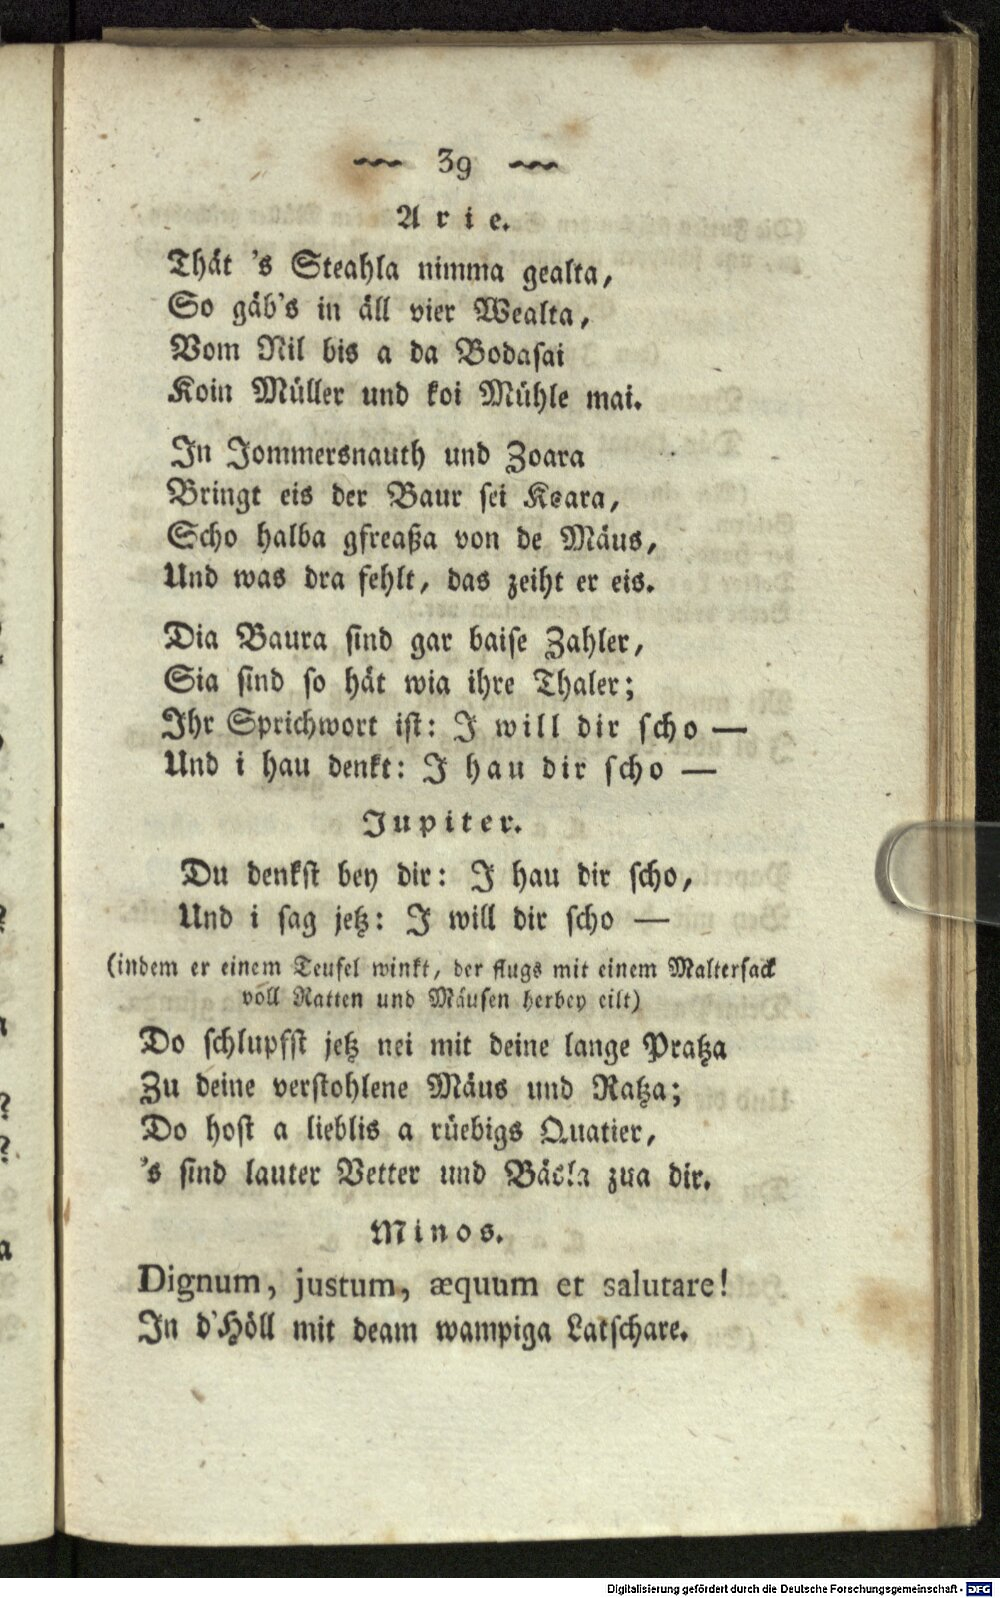 39
Arie.
Thät 's Steahla nimma gealta,
So gäb's in äll vier Wealta,
Vom Nil bis a da Bodasai
Koin Müller und koi Mühle mai.
In Jommersnauth und Zoara
Bringt eis der Baur sei Keara,
Scho halba gfreaßa von de Mäus,
Und was dra fehlt, das zeiht er eis.
Dia Baura sind gar baise Zahler,
Sia sind so hät wia ihre Thaler;
Ihr Sprichwort ist: I will dir scho —
Und i hau denkt: I hau dir scho —
Jupiter.
Du denkst bey dir: I hau dir scho,
Und i sag jetz: I will dir scho —
(indem er einem Teufel winkt, der flugs mit einem Maltersack
voll Ratten und Mäusen herbey eilt)
Do schlupfst jetz nei mit deine lange Pratza
Zu deine verstohlene Mäus und Ratza;
Do host a lieblis a rüebigs Quatier,
's sind lauter Vetter und Bäsla zua dir.
Minos.
Dignum, justum, æquum et salutare!
In d'Höll mit deam wampiga Latschare.
Digitalisierung gefördert durch die Deutsche Forschungsgemeinschaft - DFG